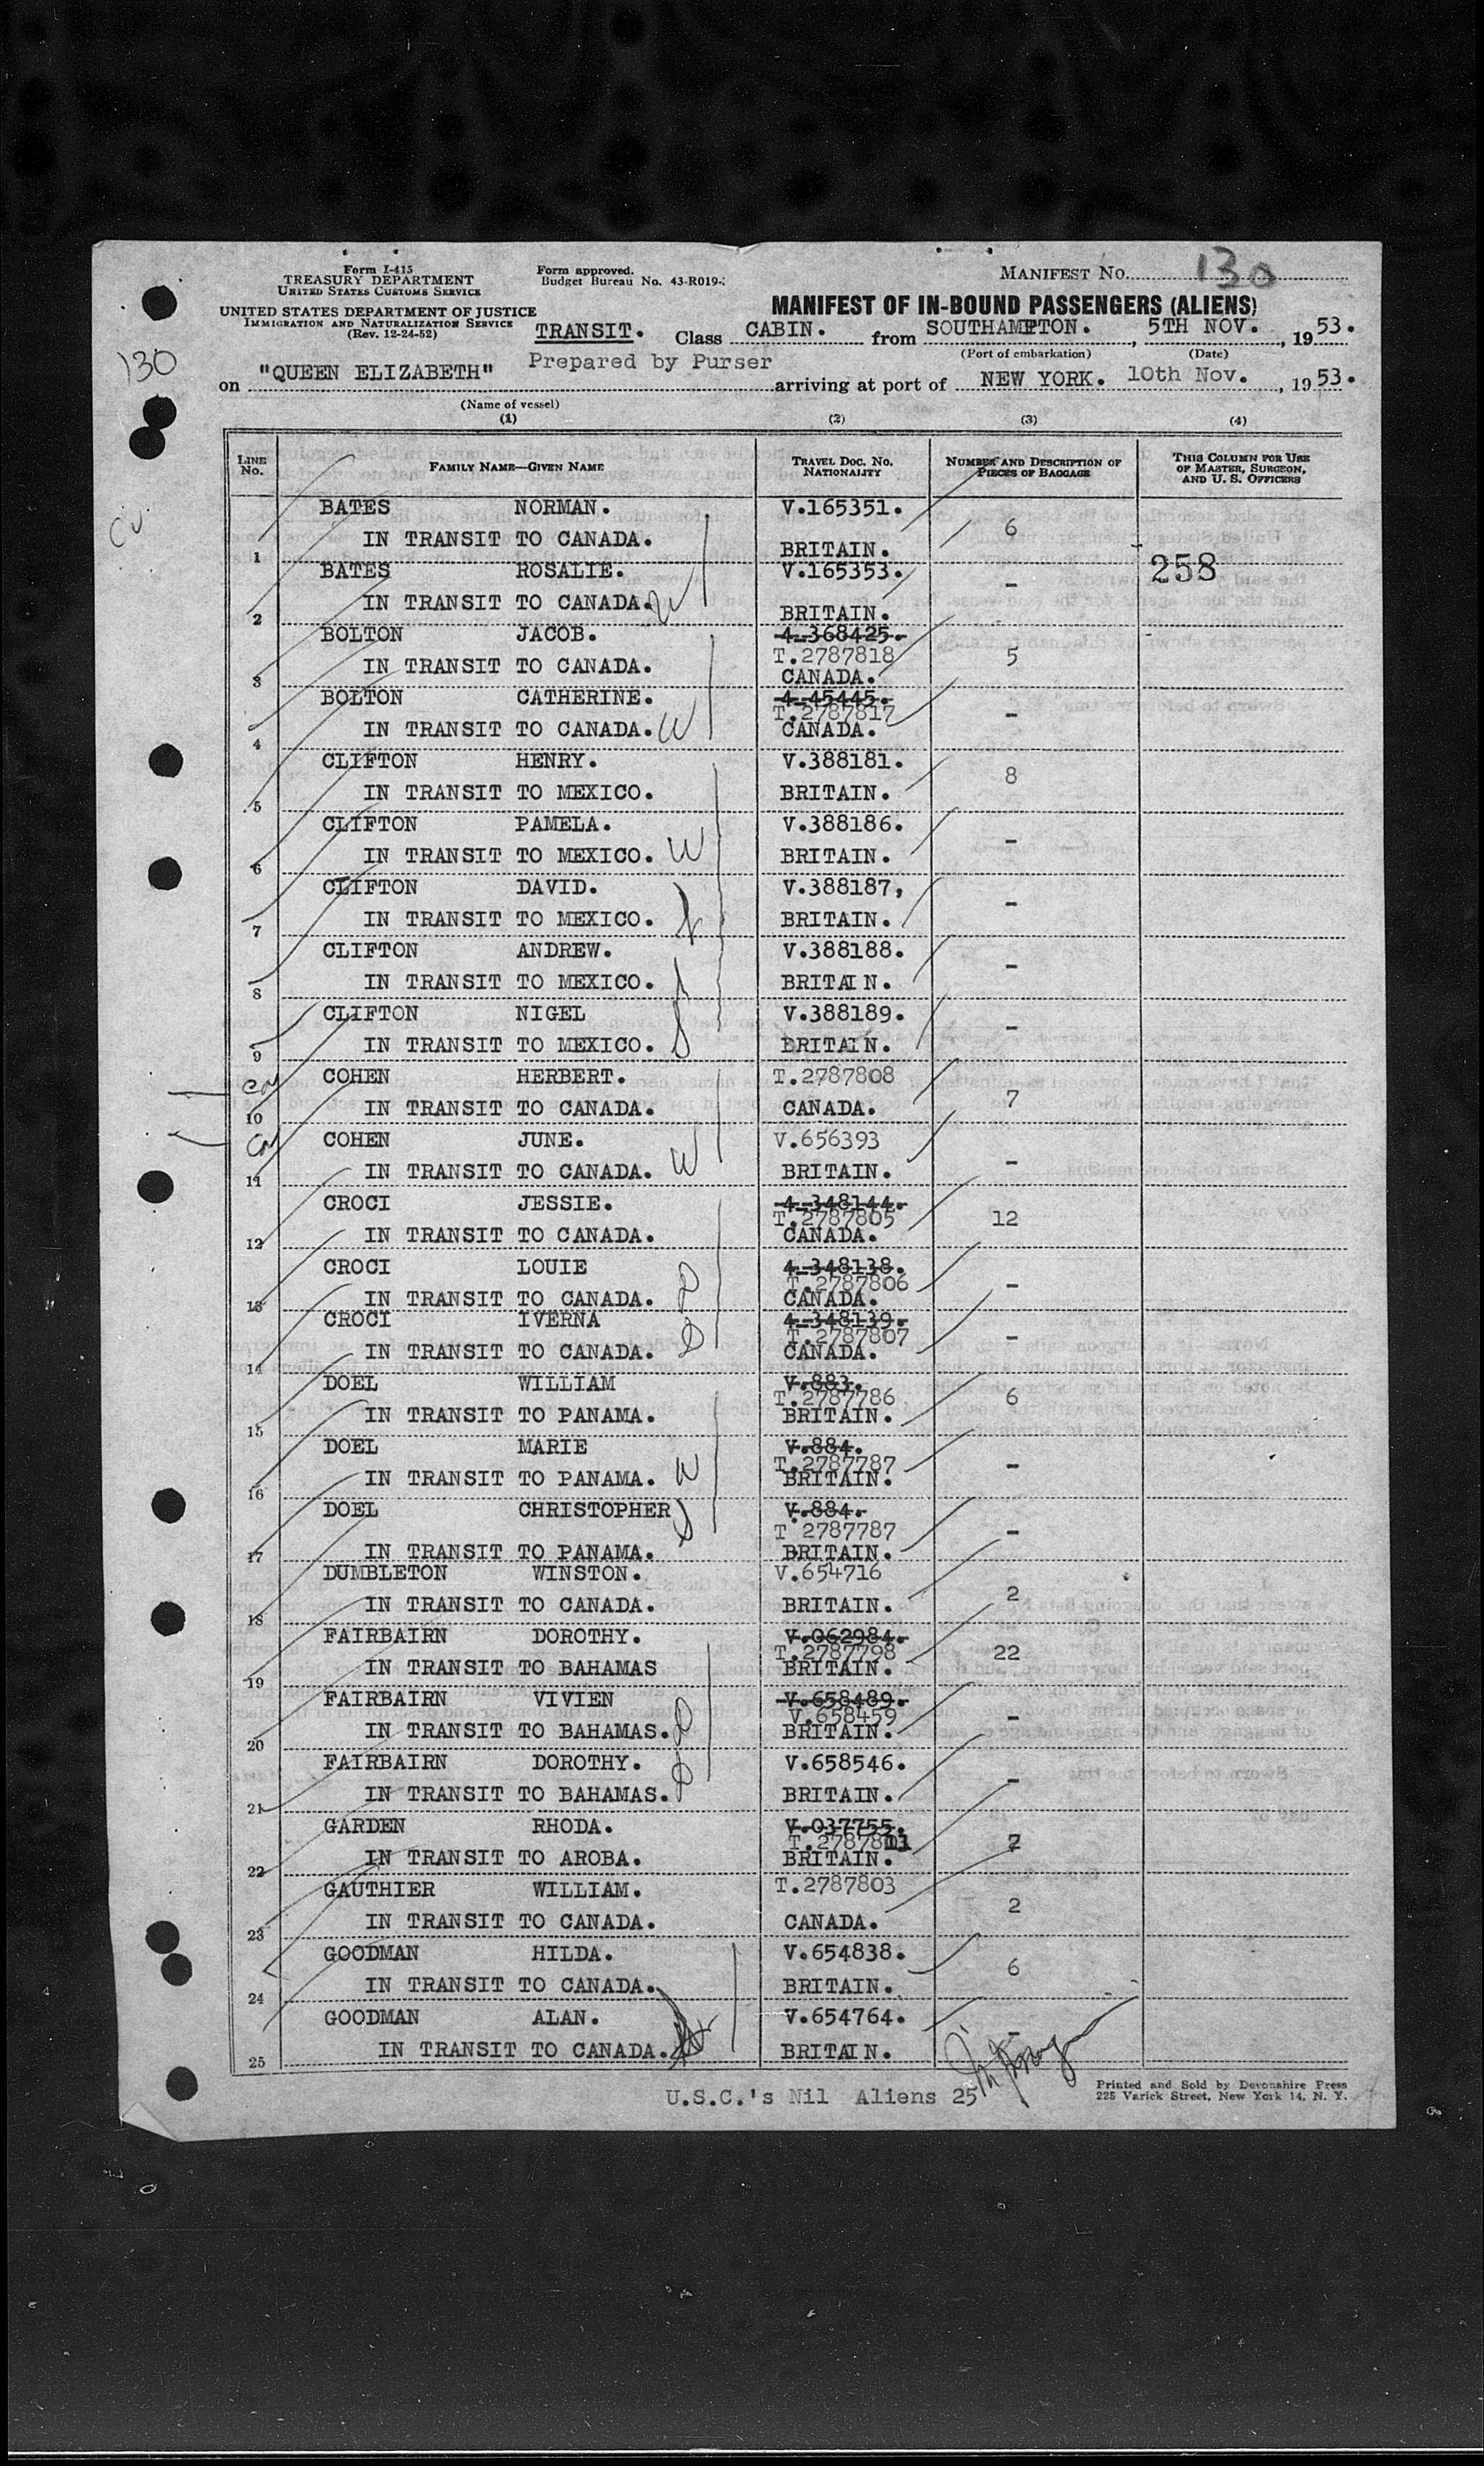 Form I-415
TREASURY DEPARTMENT
UNITED STATES CUSTOMS SERVICE
UNITED STATES DEPARTMENT OF JUSTICE
IMMIGRATION AND NATURALIZATION SERVICE
(Rev. 12-24-52)
Form approved.
Budget Bureau No. 43-R019-
MANIFEST NO. 130
MANIFEST OF IN-BOUND PASSENGERS (ALIENS)
TRANSIT. Class CABIN. from SOUTHAMPTON. , 5TH NOV. , 19 53.
(Port of embarkation) (Date)
130
Prepared by Purser
on "QUEEN ELIZABETH" arriving at port of NEW YORK. 10th Nov. , 19 53.
(Name of vessel)
(1) (2) (3) (4)
LINE NO. FAMILY NAME—GIVEN NAME TRAVEL DOC. NO. NATIONALITY NUMBER AND DESCRIPTION OF PIECES OF BAGGAGE THIS COLUMN FOR USE OF MASTER, SURGEON, AND U. S. OFFICERS
BATES NORMAN. V.165351.
1 IN TRANSIT TO CANADA. BRITAIN. 6
BATES ROSALIE. V.165353. - 258
2 IN TRANSIT TO CANADA. W BRITAIN.
BOLTON JACOB. 4-368425.
T.2787818
3 IN TRANSIT TO CANADA. CANADA. 5
BOLTON CATHERINE. 4-45445.
T.2787817
4 IN TRANSIT TO CANADA. W CANADA. -
CLIFTON HENRY. V.388181.
5 IN TRANSIT TO MEXICO. BRITAIN. 8
CLIFTON PAMELA. V.388186.
6 IN TRANSIT TO MEXICO. W BRITAIN. -
CLIFTON DAVID. V.388187,
7 IN TRANSIT TO MEXICO. BRITAIN. -
CLIFTON ANDREW. V.388188.
8 IN TRANSIT TO MEXICO. BRITAIN. -
CLIFTON NIGEL V.388189.
9 IN TRANSIT TO MEXICO. BRITAIN. -
COHEN HERBERT. T.2787808
10 IN TRANSIT TO CANADA. CANADA. 7
COHEN JUNE. V.656393
11 IN TRANSIT TO CANADA. W BRITAIN. -
CROCI JESSIE. 4-348144.
T.2787805
12 IN TRANSIT TO CANADA. CANADA. 12
CROCI LOUIE 4-348138.
T.2787806
13 IN TRANSIT TO CANADA. D CANADA. -
CROCI IVERNA 4-348139.
T.2787807
14 IN TRANSIT TO CANADA. CANADA. -
DOEL WILLIAM V.883.
T.2787786
15 IN TRANSIT TO PANAMA. BRITAIN. 6
DOEL MARIE V.884.
T.2787787
16 IN TRANSIT TO PANAMA. W BRITAIN. -
DOEL CHRISTOPHER V.884.
T 2787787
17 IN TRANSIT TO PANAMA. BRITAIN. -
DUMBLETON WINSTON. V.654716
18 IN TRANSIT TO CANADA. BRITAIN. 2
FAIRBAIRN DOROTHY. V.062984.
T.2787798
19 IN TRANSIT TO BAHAMAS BRITAIN. 22
FAIRBAIRN VIVIEN V.658489.
V.658459
20 IN TRANSIT TO BAHAMAS. D BRITAIN. -
FAIRBAIRN DOROTHY. V.658546.
21 IN TRANSIT TO BAHAMAS. D BRITAIN. -
GARDEN RHODA. V.037755.
22 IN TRANSIT TO AROBA. BRITAIN.
GAUTHIER WILLIAM. T.2787803
23 IN TRANSIT TO CANADA. CANADA. 2
GOODMAN HILDA. V.654838.
24 IN TRANSIT TO CANADA. BRITAIN. 6
GOODMAN ALAN. V.654764.
25 IN TRANSIT TO CANADA. BRITAIN. -
U.S.C.'s Nil Aliens 25
Printed and Sold by Devonshire Press
225 Varick Street, New York 14, N. Y.